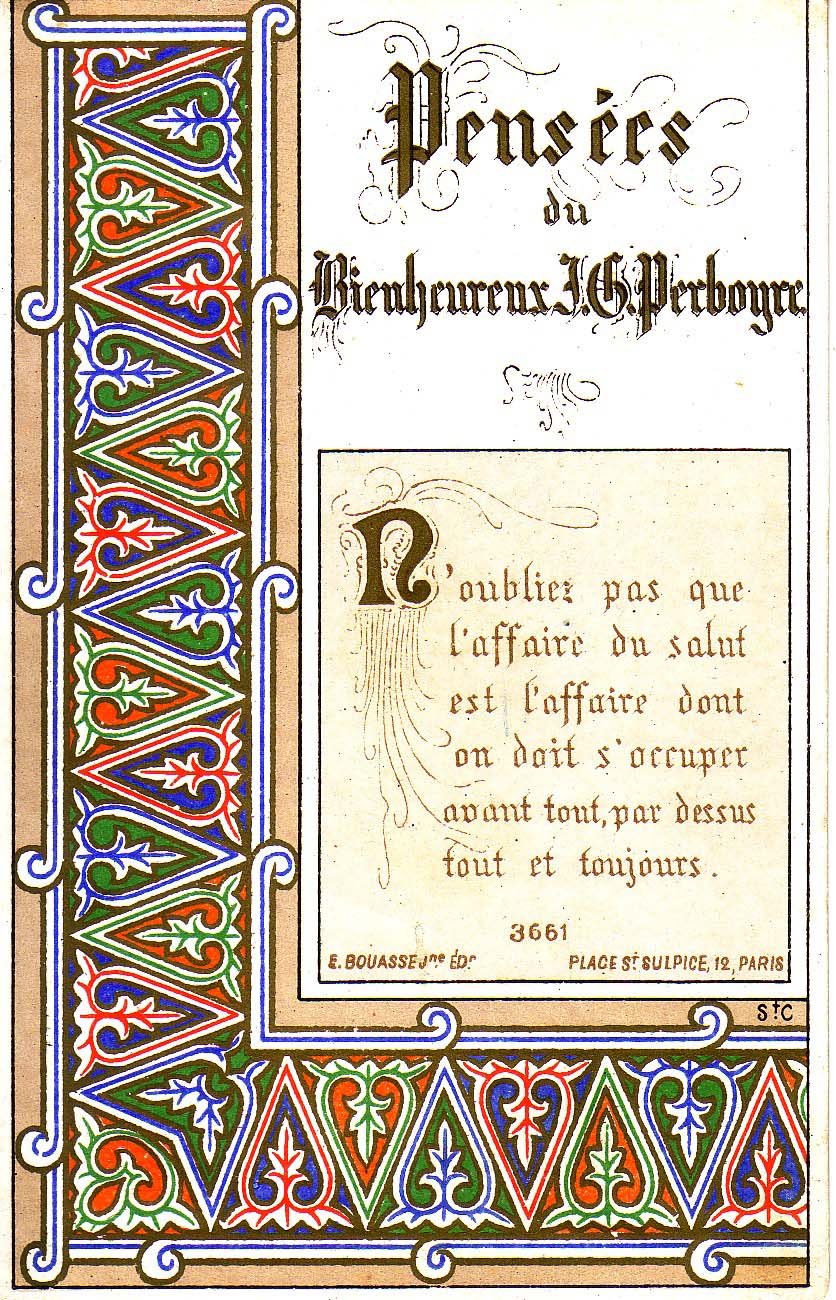 Pensées
du
Bienheureux J.G. Perboyre.
N'oubliez pas que
l'affaire du salut
est l'affaire dont
on doit s'occuper
avant tout, par dessus
tout et toujours.
3661
E. BOUASSE Jne ÉDr. PLACE St SULPICE, 12, PARIS
StC